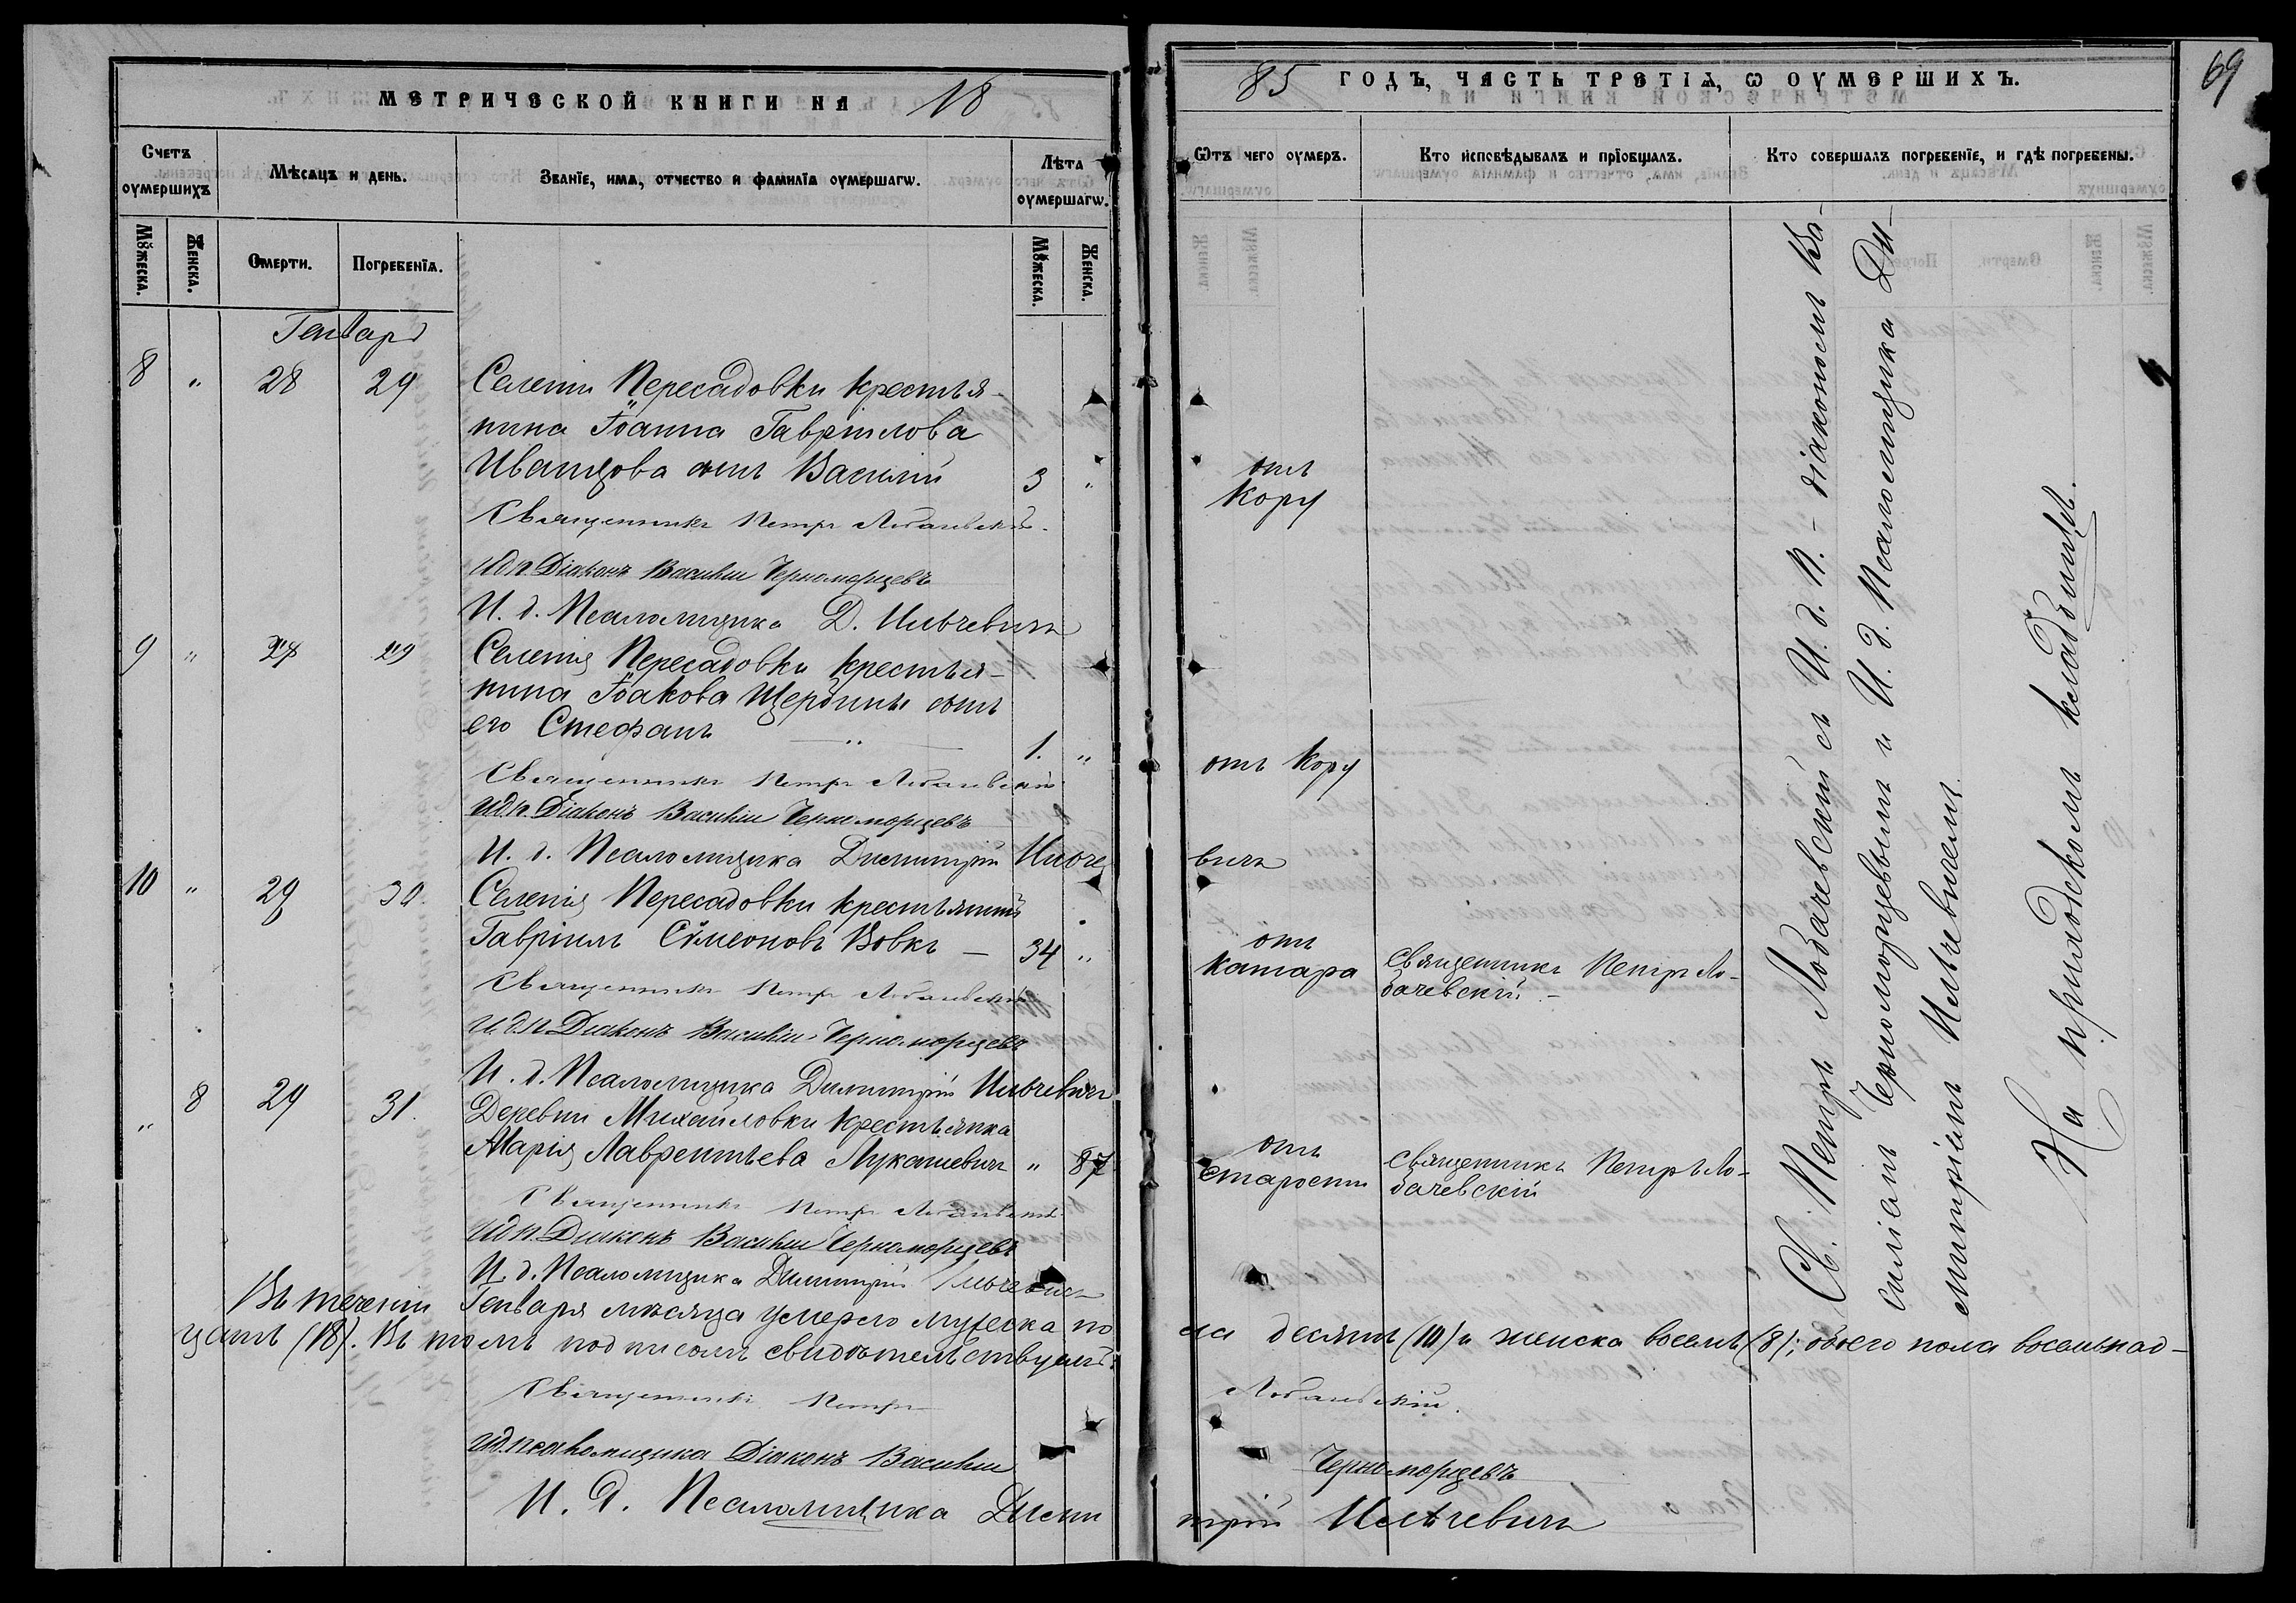 МЕТРИЧЕСКОЙ КНИГИ НА 18
85 ГОДЪ, ЧАСТЬ ТРЕТІѦ, Ѡ ОУМЕРШИХЪ.
69
Счетъ оумершихъ
Мѣсяцъ и день.
Званїе, имѧ, отчество и фамилїѧ оумершагѡ.
Лѣта оумершагѡ.
Ѿтъ чего оумеръ.
Кто исповѣдывалъ и прїобщалъ.
Кто совершалъ погребенїе, и гдѣ погребены.
Мꙋжеска.
Женска.
Смерти.
Погребенїѧ.
Мꙋжеска.
Женска.
Генварь
8 " 28 29 Селенія Пересадовки крестья-
нина Іоанна Гавріилова
Иванцова сынъ Василій 3 "
отъ
кору
Священникъ Петръ Лобачевскій.
И д п. Діаконъ Василій Черноморцевъ
И. д. Псаломщика Д. Ильчевичъ
9 " 28 29 Селенія Пересадовки крестья-
нина Іоакова Щербины сынъ
его Стефанъ 1. "
отъ кору
Священникъ Петръ Лобачевскій
И д п. Діаконъ Василій Черноморцевъ
И. д. Псаломщика Димитрій Ильче
вичъ
10 " 29 30. Селенія Пересадовки крестьянинъ
Гавріилъ Сѵмеоновъ Вовкъ — 34 "
отъ
катара
Священникъ Петръ Ло-
бачевскій. –
Священникъ Петръ Лобачевскій
И д п Діаконъ Василій Черноморцевъ
И. д. Псаломщика Димитрій Ильчевичъ
" 8 29 31. Деревни Михайловки крестьянка
Марія Лаврентьева Лукашевич " 87
отъ
старости
Священникъ Петръ Ло-
бачевскій
Священникъ Петръ Лобачевскій
И д п. Діаконъ Василій Черноморцевъ
И. д. Псаломщика Димитрій Ильчевичъ
Св. Петръ Лобачевскій съ И. д. П. – діакономъ Ва-
силіемъ Черноморцевымъ и И. д. Псаломщика Ди-
митріемъ Ильчевичемъ.
На приходскомъ кладбищѣ.
Въ теченіи Генваря мѣсяца умерло мужеска по
ла десять (10) и женска восемь (8); обоего пола восемьнад-
цать (18). Въ томъ подписомъ свидѣтельствуемъ:
Священникъ Петръ Лобачевскій.
И д. псаломщика Діаконъ Василій Черноморцевъ
И. д. Псаломщика Дими
трій Ильчевичъ